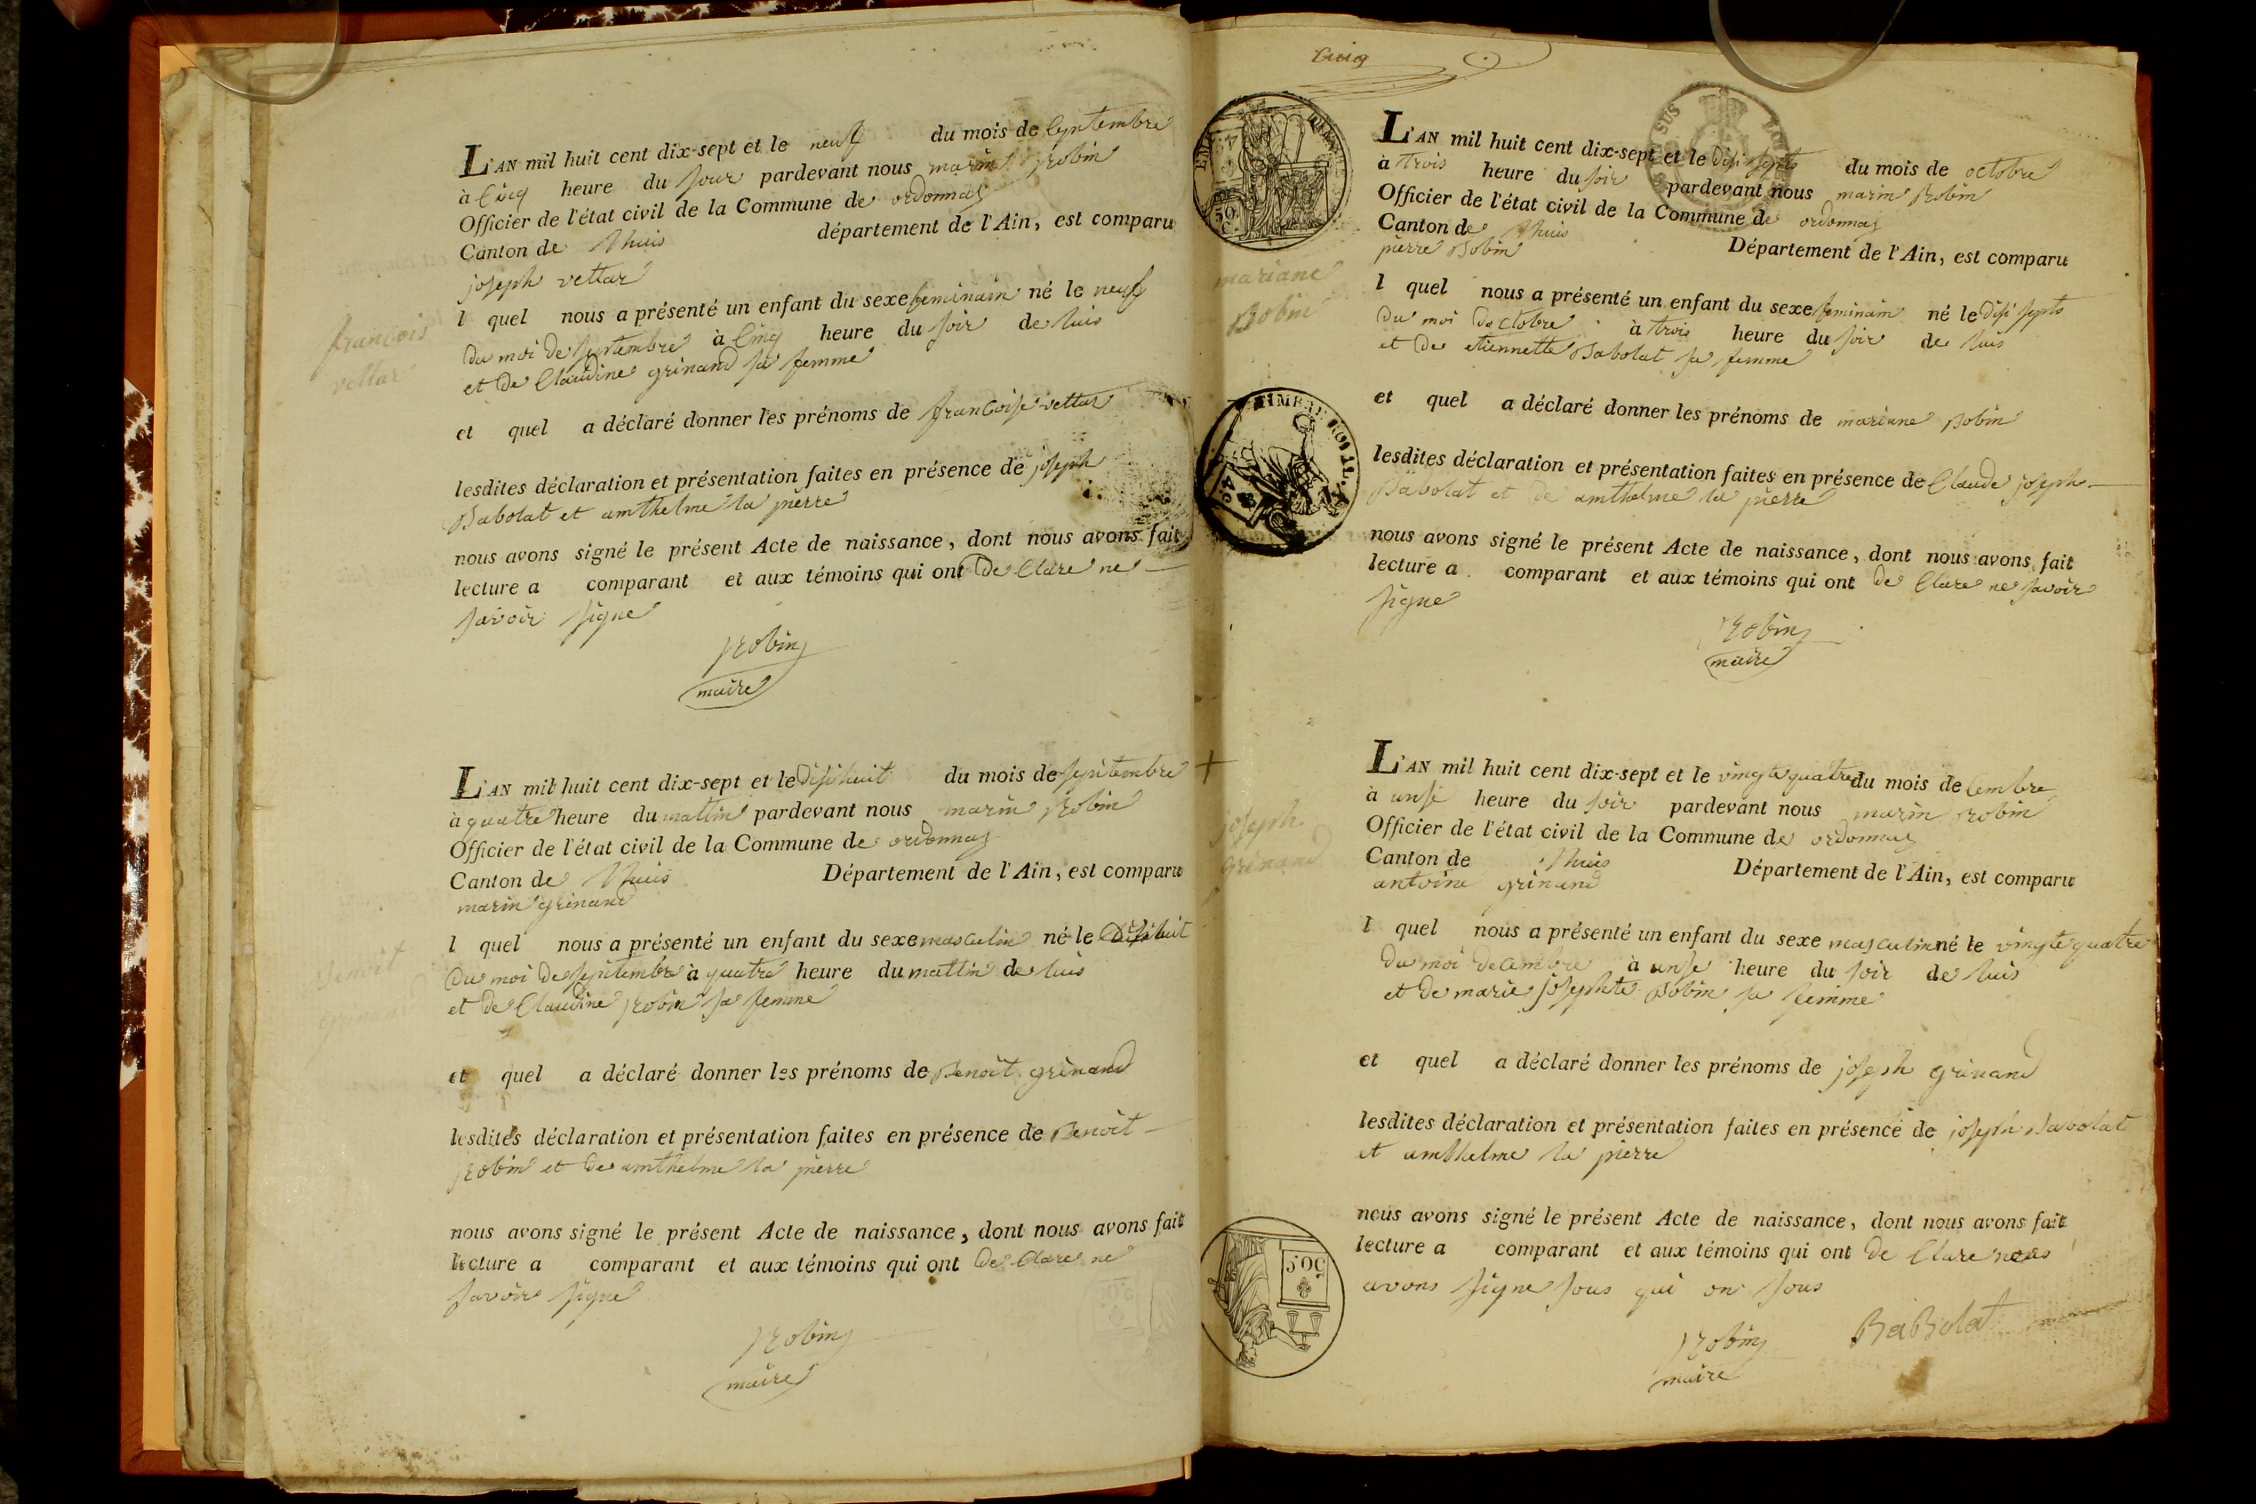 L'AN mil huit cent dix-sept et le neuf du mois de Ceptembre
à Cinq heure du soir pardevant nous marin Robin
Officier de l'état civil de la Commune de ordonnas
Canton de Lhuis département de l'Ain, est comparu
joseph vettar
l quel nous a présenté un enfant du sexe feminain né le neuf
du moi de septembre à Cinq heure du soir de luis
et de Claudine grinand sa femme
et quel a déclaré donner les prénoms de francoise vettar
lesdites déclaration et présentation faites en présence de joseph
Babolat et amthelme la pierre
nous avons signé le présent Acte de naissance, dont nous avons fait
lecture a comparant et aux témoins qui ont de Clare ne
savoir signe
Robin
maire
francois
vettar
L'AN mil huit cent dix-sept et le disihuit du mois de septembre
à quatre heure du mattin pardevant nous marin Robin
Officier de l'état civil de la Commune de ordonnas
Canton de Lhuis Département de l'Ain, est comparu
marin grinand
l quel nous a présenté un enfant du sexe masculin né le disihuit
du moi de septembre à quatre heure du mattin de luis
et de Claudine Robin sa femme
et quel a déclaré donner les prénoms de Benoit grinand
lesdites déclaration et présentation faites en présence de Benoit
Robin et de amthelme la pierre
nous avons signé le présent Acte de naissance, dont nous avons fait
lecture a comparant et aux témoins qui ont de Clare ne
savoir signe
Robin
maire
Benoit
grinand
Cinq
TIMBRE ROYAL
50 C
L'AN mil huit cent dix-sept et le disi septs du mois de octobre
à trois heure du soir pardevant nous marin Robin
Officier de l'état civil de la Commune de ordonnas
Canton de Lhuis Département de l'Ain, est comparu
pierre Bobin
l quel nous a présenté un enfant du sexe feminain né le disi septs
du moi doctobre à trois heure du soir de luis
et de etiennette Babolat sa femme
et quel a déclaré donner les prénoms de mariane Bobin
lesdites déclaration et présentation faites en présence de Claude joseph
Babolat et de amthelme la pierre
nous avons signé le présent Acte de naissance, dont nous avons fait
lecture a comparant et aux témoins qui ont de Clare ne savoir
signe
Robin
maire
mariane
Bobin
L'AN mil huit cent dix-sept et le vingte quatre du mois de Cembre
à unse heure du soir pardevant nous marin Robin
Officier de l'état civil de la Commune de ordonnas
Canton de Lhuis Département de l'Ain, est comparu
antoine grinand
l quel nous a présenté un enfant du sexe masculin né le vingte quatre
du moi decembre à unse heure du soir de luis
et de marie josephte Bobin sa femme
et quel a déclaré donner les prénoms de joseph grinand
lesdites déclaration et présentation faites en présence de joseph Babolat
et amthelme la pierre
nous avons signé le présent Acte de naissance, dont nous avons fait
lecture a comparant et aux témoins qui ont de Clare nous
avons signe sous qui on sous
BaBolat
Robin
maire
joseph
grinand
50 C